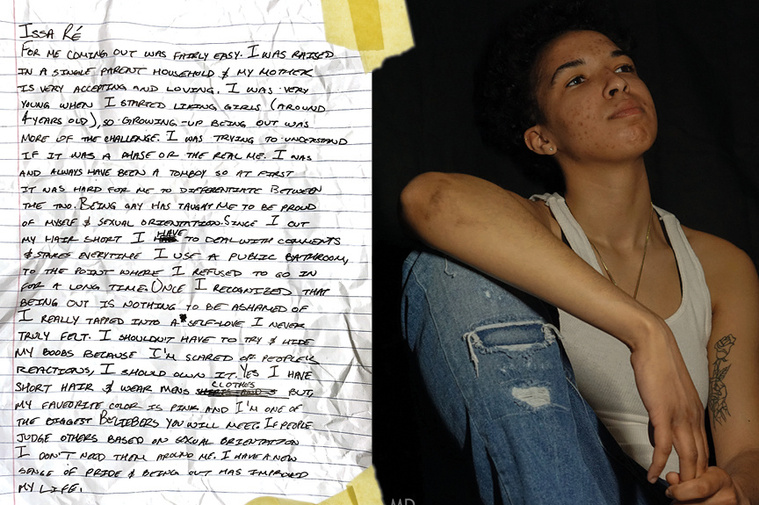 ISSA RÉ
FOR ME COMING OUT WAS FAIRLY EASY. I WAS RAISED
IN A SINGLE PARENT HOUSEHOLD & MY MOTHER
IS VERY ACCEPTING AND LOVING. I WAS VERY
YOUNG WHEN I STARTED LIKING GIRLS (AROUND
4 YEARS OLD), SO GROWING-UP BEING OUT WAS
MORE OF THE CHALLENGE. I WAS TRYING TO UNDERSTAND
IF IT WAS A PHASE OR THE REAL ME. I WAS
AND ALWAYS HAVE BEEN A TOMBOY SO AT FIRST
IT WAS HARD FOR ME TO DIFFERENTIATE BETWEEN
THE TWO. BEING GAY HAS TAUGHT ME TO BE PROUD
OF MYSELF & SEXUAL ORIENTATION. SINCE I CUT
MY HAIR SHORT I HAVE TO DEAL WITH COMMENTS
& STARES EVERYTIME I USE A PUBLIC BATHROOM,
TO THE POINT WHERE I REFUSED TO GO IN
FOR A LONG TIME. ONCE I RECOGNIZED THAT
BEING OUT IS NOTHING TO BE ASHAMED OF
I REALLY TAPPED INTO A SELF-LOVE I NEVER
TRULY FELT. I SHOULDN'T HAVE TO TRY & HIDE
MY BOOBS BECAUSE I'M SCARED OF PEOPLE'S
REACTIONS, I SHOULD OWN IT. YES I HAVE
SHORT HAIR & WEAR MENS CLOTHES BUT
MY FAVEORITE COLOR IS PINK AND I'M ONE OF
THE BIGGEST BELIEBERS YOU WILL MEET. IF PEOPLE
JUDGE OTHERS BASED ON SEXUAL ORIENTATION
I DON'T NEED THEM AROUND ME. I HAVE A NEW
SENSE OF PRIDE & BEING OUT HAS IMPROVED
MY LIFE.